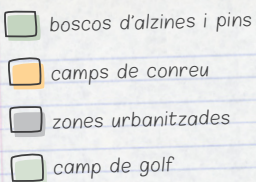 boscos d'alzines i pins
camps de conreu
zones urbanitzades
camp de golf